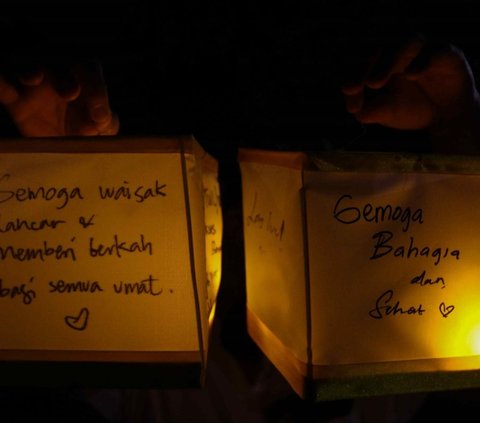 Semoga waisak
lancar &
memberi berkah
bagi semua umat.
Semoga
Bahagia
dan
Sehat